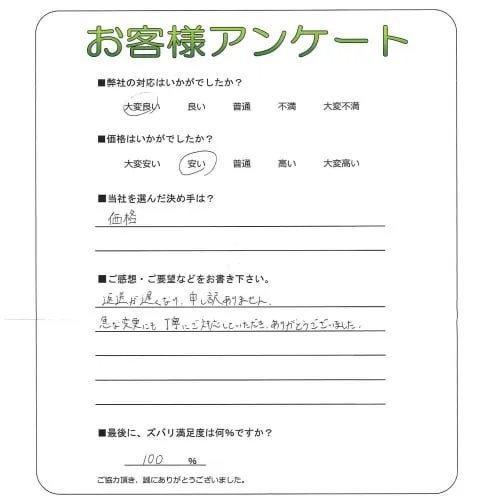 お客様アンケート
■弊社の対応はいかがでしたか？
大変良い 良い 普通 不満 大変不満
■価格はいかがでしたか？
大変安い 安い 普通 高い 大変高い
■当社を選んだ決め手は？
価格
■ご感想・ご要望などをお書き下さい。
返送が遅くなり、申し訳ありません。
急な変更にも丁寧にご対応していただき、ありがとうございました。
■最後に、ズバリ満足度は何％ですか？
100 ％
ご協力頂き、誠にありがとうございました。